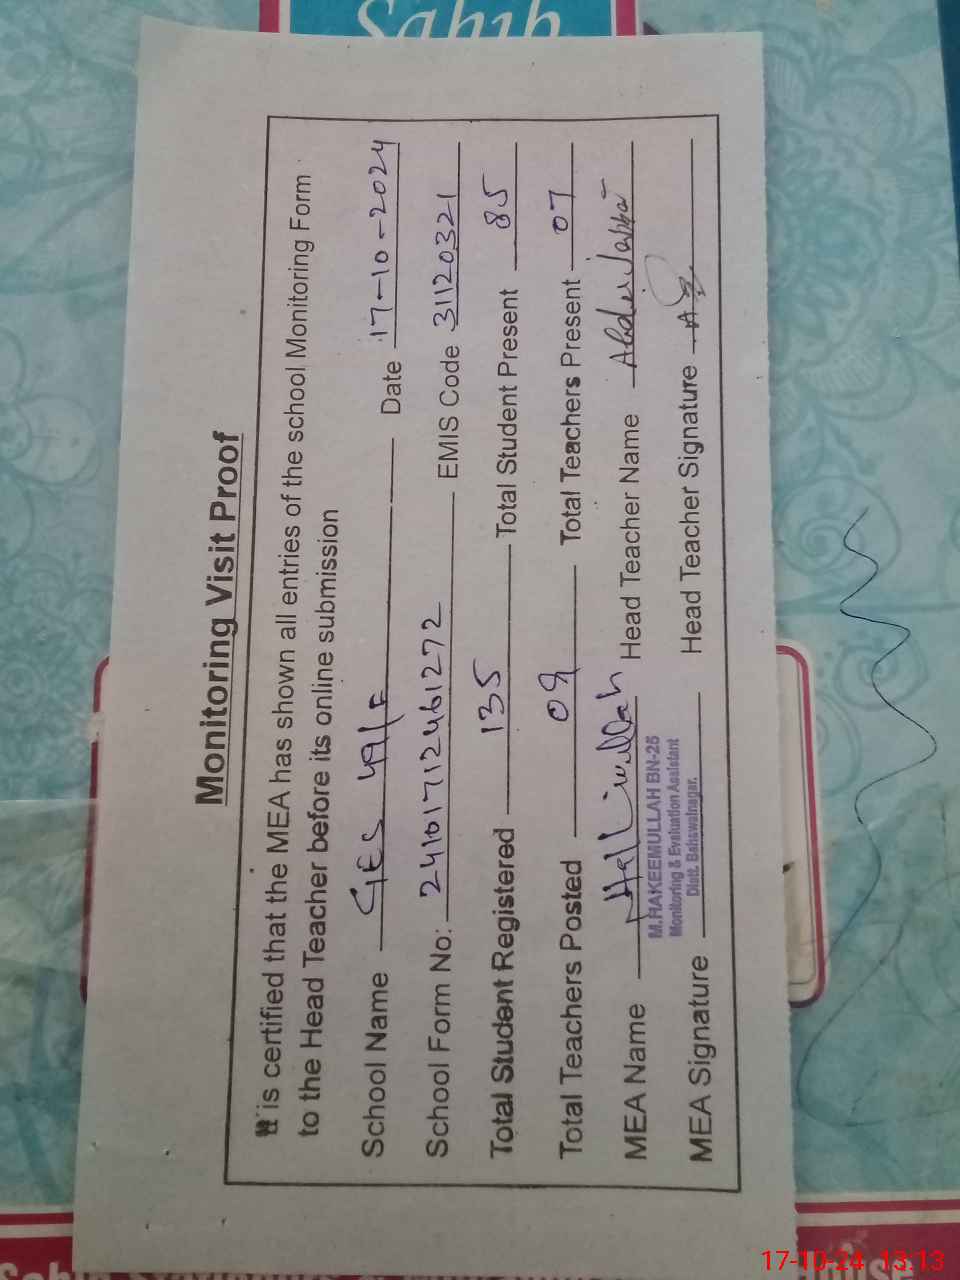 Sahib
Monitoring Visit Proof
It is certified that the MEA has shown all entries of the school Monitoring Form
to the Head Teacher before its online submission
School Name GES 49/F Date 17-10-2024
School Form No: 241017124461272 EMIS Code 31120321
Total Student Registered 135 Total Student Present 85
Total Teachers Posted 08 Total Teachers Present 07
MEA Name Head Teacher Name Abdul Jabbar
M.HAKEEMULLAH BN-25
Monitoring & Evaluation Assistant
Distt. Bahawalnagar.
MEA Signature Head Teacher Signature
17-10-24 13:13